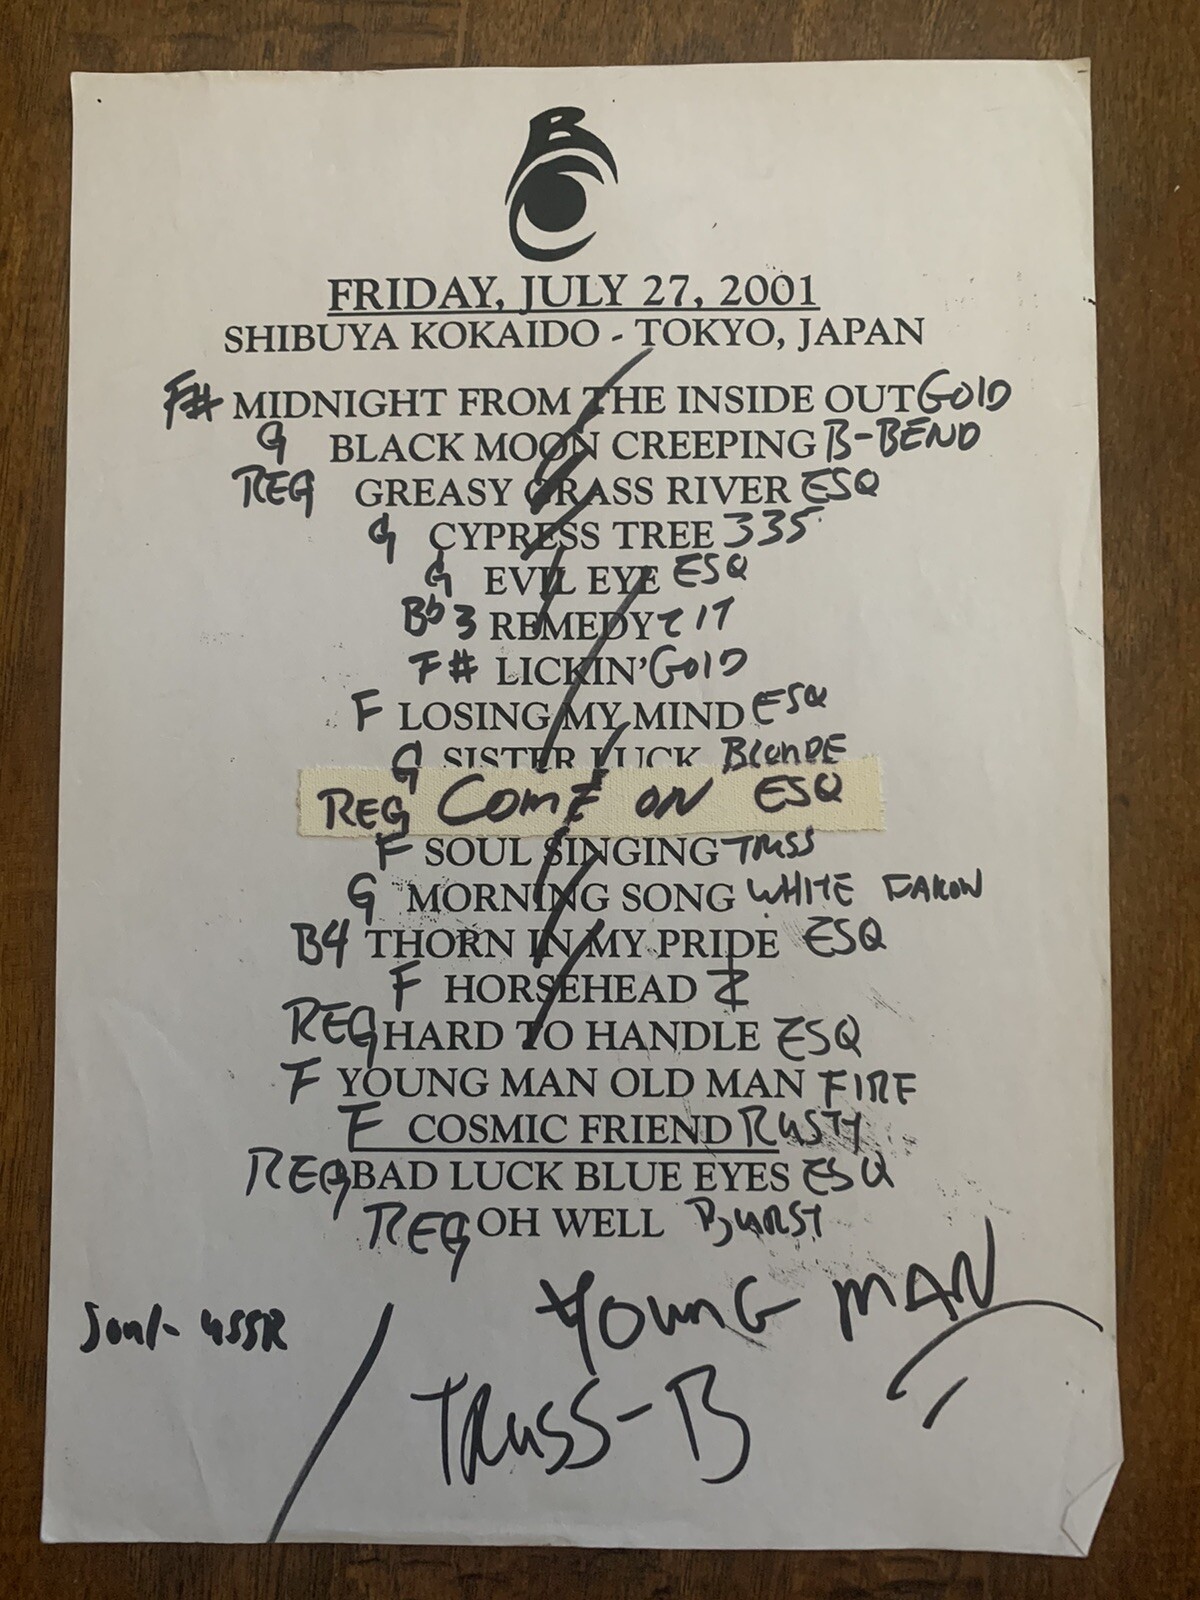 B
C
FRIDAY, JULY 27, 2001
SHIBUYA KOKAIDO - TOKYO, JAPAN
F# MIDNIGHT FROM THE INSIDE OUT GOLD
G BLACK MOON CREEPING B-BEND
REG GREASY GRASS RIVER ESQ
G CYPRESS TREE 335
G EVIL EYE ESQ
Bb 3 REMEDY
F# LICKIN' GOLD
F LOSING MY MIND ESQ
G SISTER LUCK BLONDE
REG COME ON ESQ
F SOUL SINGING TRUSS
G MORNING SONG WHITE FALCON
B4 THORN IN MY PRIDE ESQ
F HORSEHEAD Z
REG HARD TO HANDLE ESQ
F YOUNG MAN OLD MAN FIRE
F COSMIC FRIEND RUSTY
REG BAD LUCK BLUE EYES ESQ
REG OH WELL BURST
YOUNG MAN
Soul- USSR
TRUSS-B